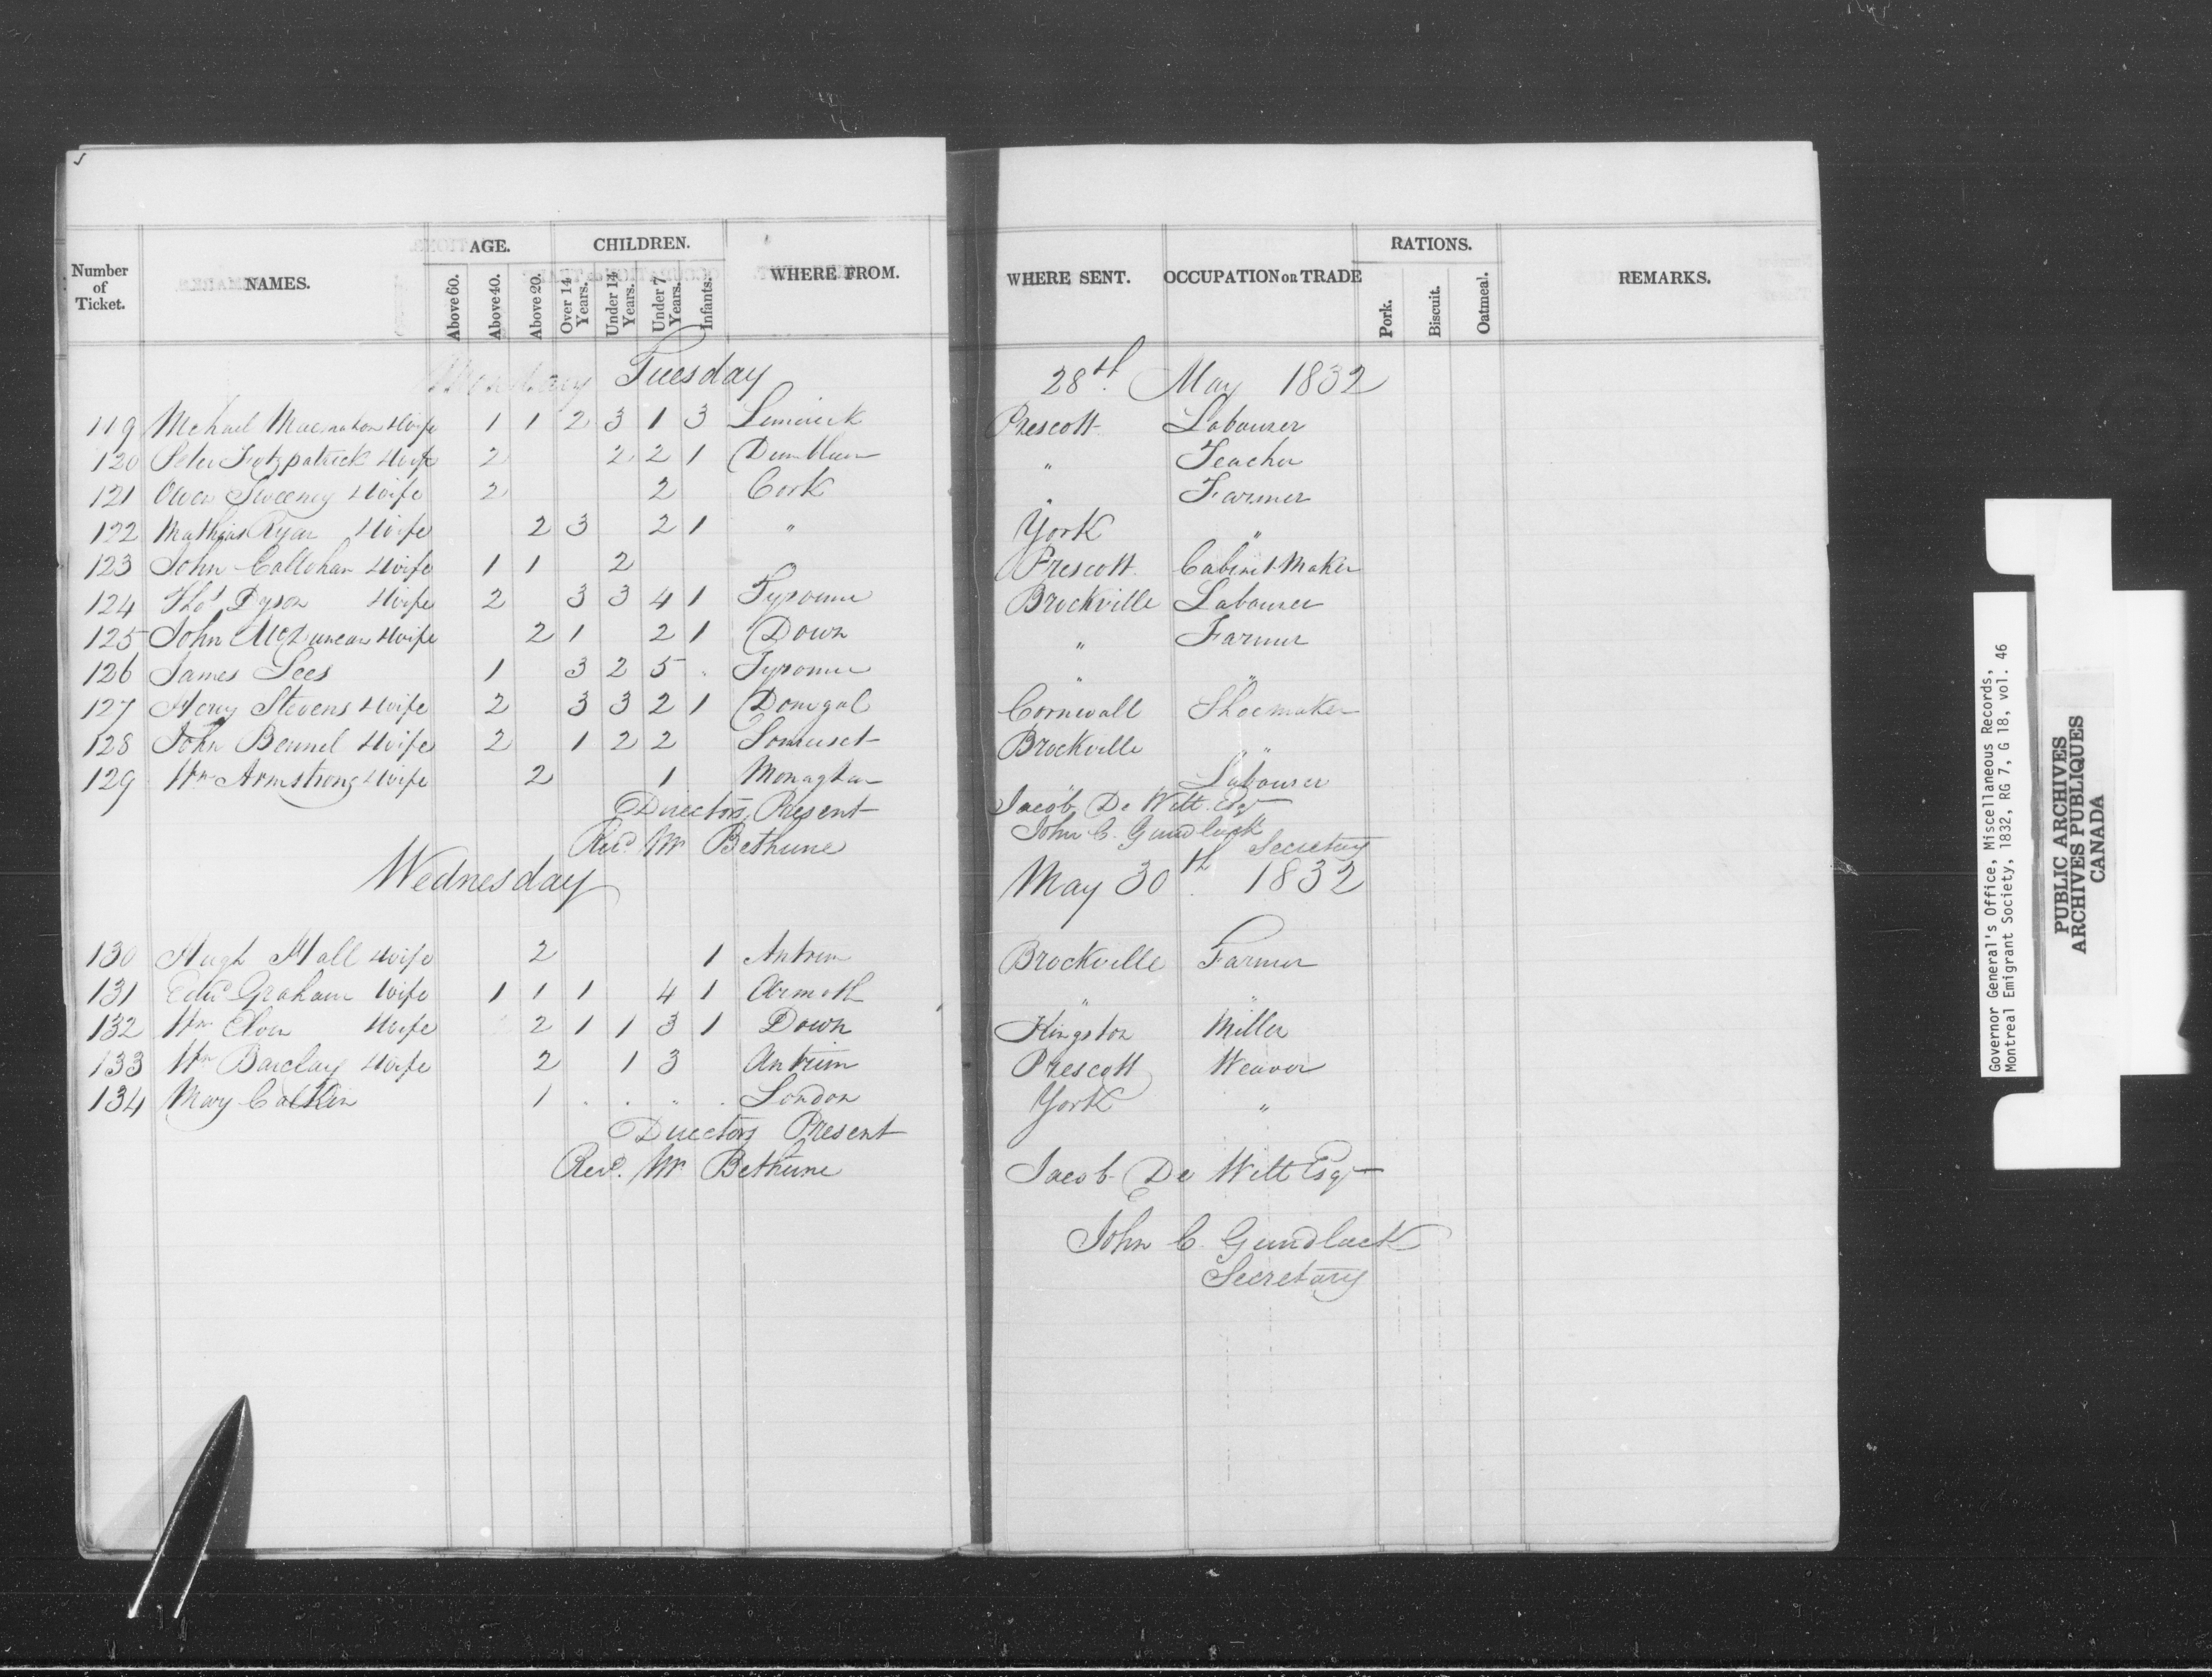 Number of Ticket. NAMES. AGE. CHILDREN. WHERE FROM. WHERE SENT. OCCUPATION OR TRADE RATIONS. REMARKS.
Above 60. Above 40. Above 20. Over 14 Years. Under 14 Years. Under 7 Years. Infants. Pork. Biscuit. Oatmeal.
Tuesday 28th May 1832
119 Michael Macmahon Wife 1 1 2 3 1 3 Limerick Prescott Labourer
120 Peter Fitzpatrick Wife 2 2 2 1 " Teacher
121 Owen Sweeney Wife 2 2 Cork " Farmer
122 Mathias Ryan Wife 2 3 2 1 " York "
123 John Callohan Wife 1 1 2 Prescott Cabinet Maker
124 Thos Dyson Wife 2 3 3 4 1 Tyrone Brockville Labourer
125 John McDuncan Wife 2 1 2 1 Down " Farmer
126 James Lees 1 3 2 5 . Tyrone " "
127 Henry Stevens Wife 2 3 3 2 1 Donegal Cornwall Shoemaker
128 John Bennel Wife 2 1 2 2 Somerset Brockville " "
129 Wm Armstrong Wife 2 1 Monaghan Labourer
Directors Present Jacob De Witt Esqr
Revd. Mr Bethune John C. Gundlack Secretary
Wednesday May 30th 1832
130 Hugh Hall Wife 2 1 Antrim Brockville Farmer
131 Edwd Graham Wife 1 1 1 4 1 Armoth " "
132 Wm Wife 2 1 1 3 1 Down Kingston Miller
133 Wm Barclay Wife 2 1 3 Antrim Prescott Weaver
134 Mary Calkin 1 . . " . London York "
Directors Present
Revd. Mr Bethune Jacob De Witt Esqr
John C. Gundlack
Secretary
Governor General's Office, Miscellaneous Records,
Montreal Emigrant Society, 1832, RG 7, G 18, vol. 46
PUBLIC ARCHIVES
ARCHIVES PUBLIQUES
CANADA